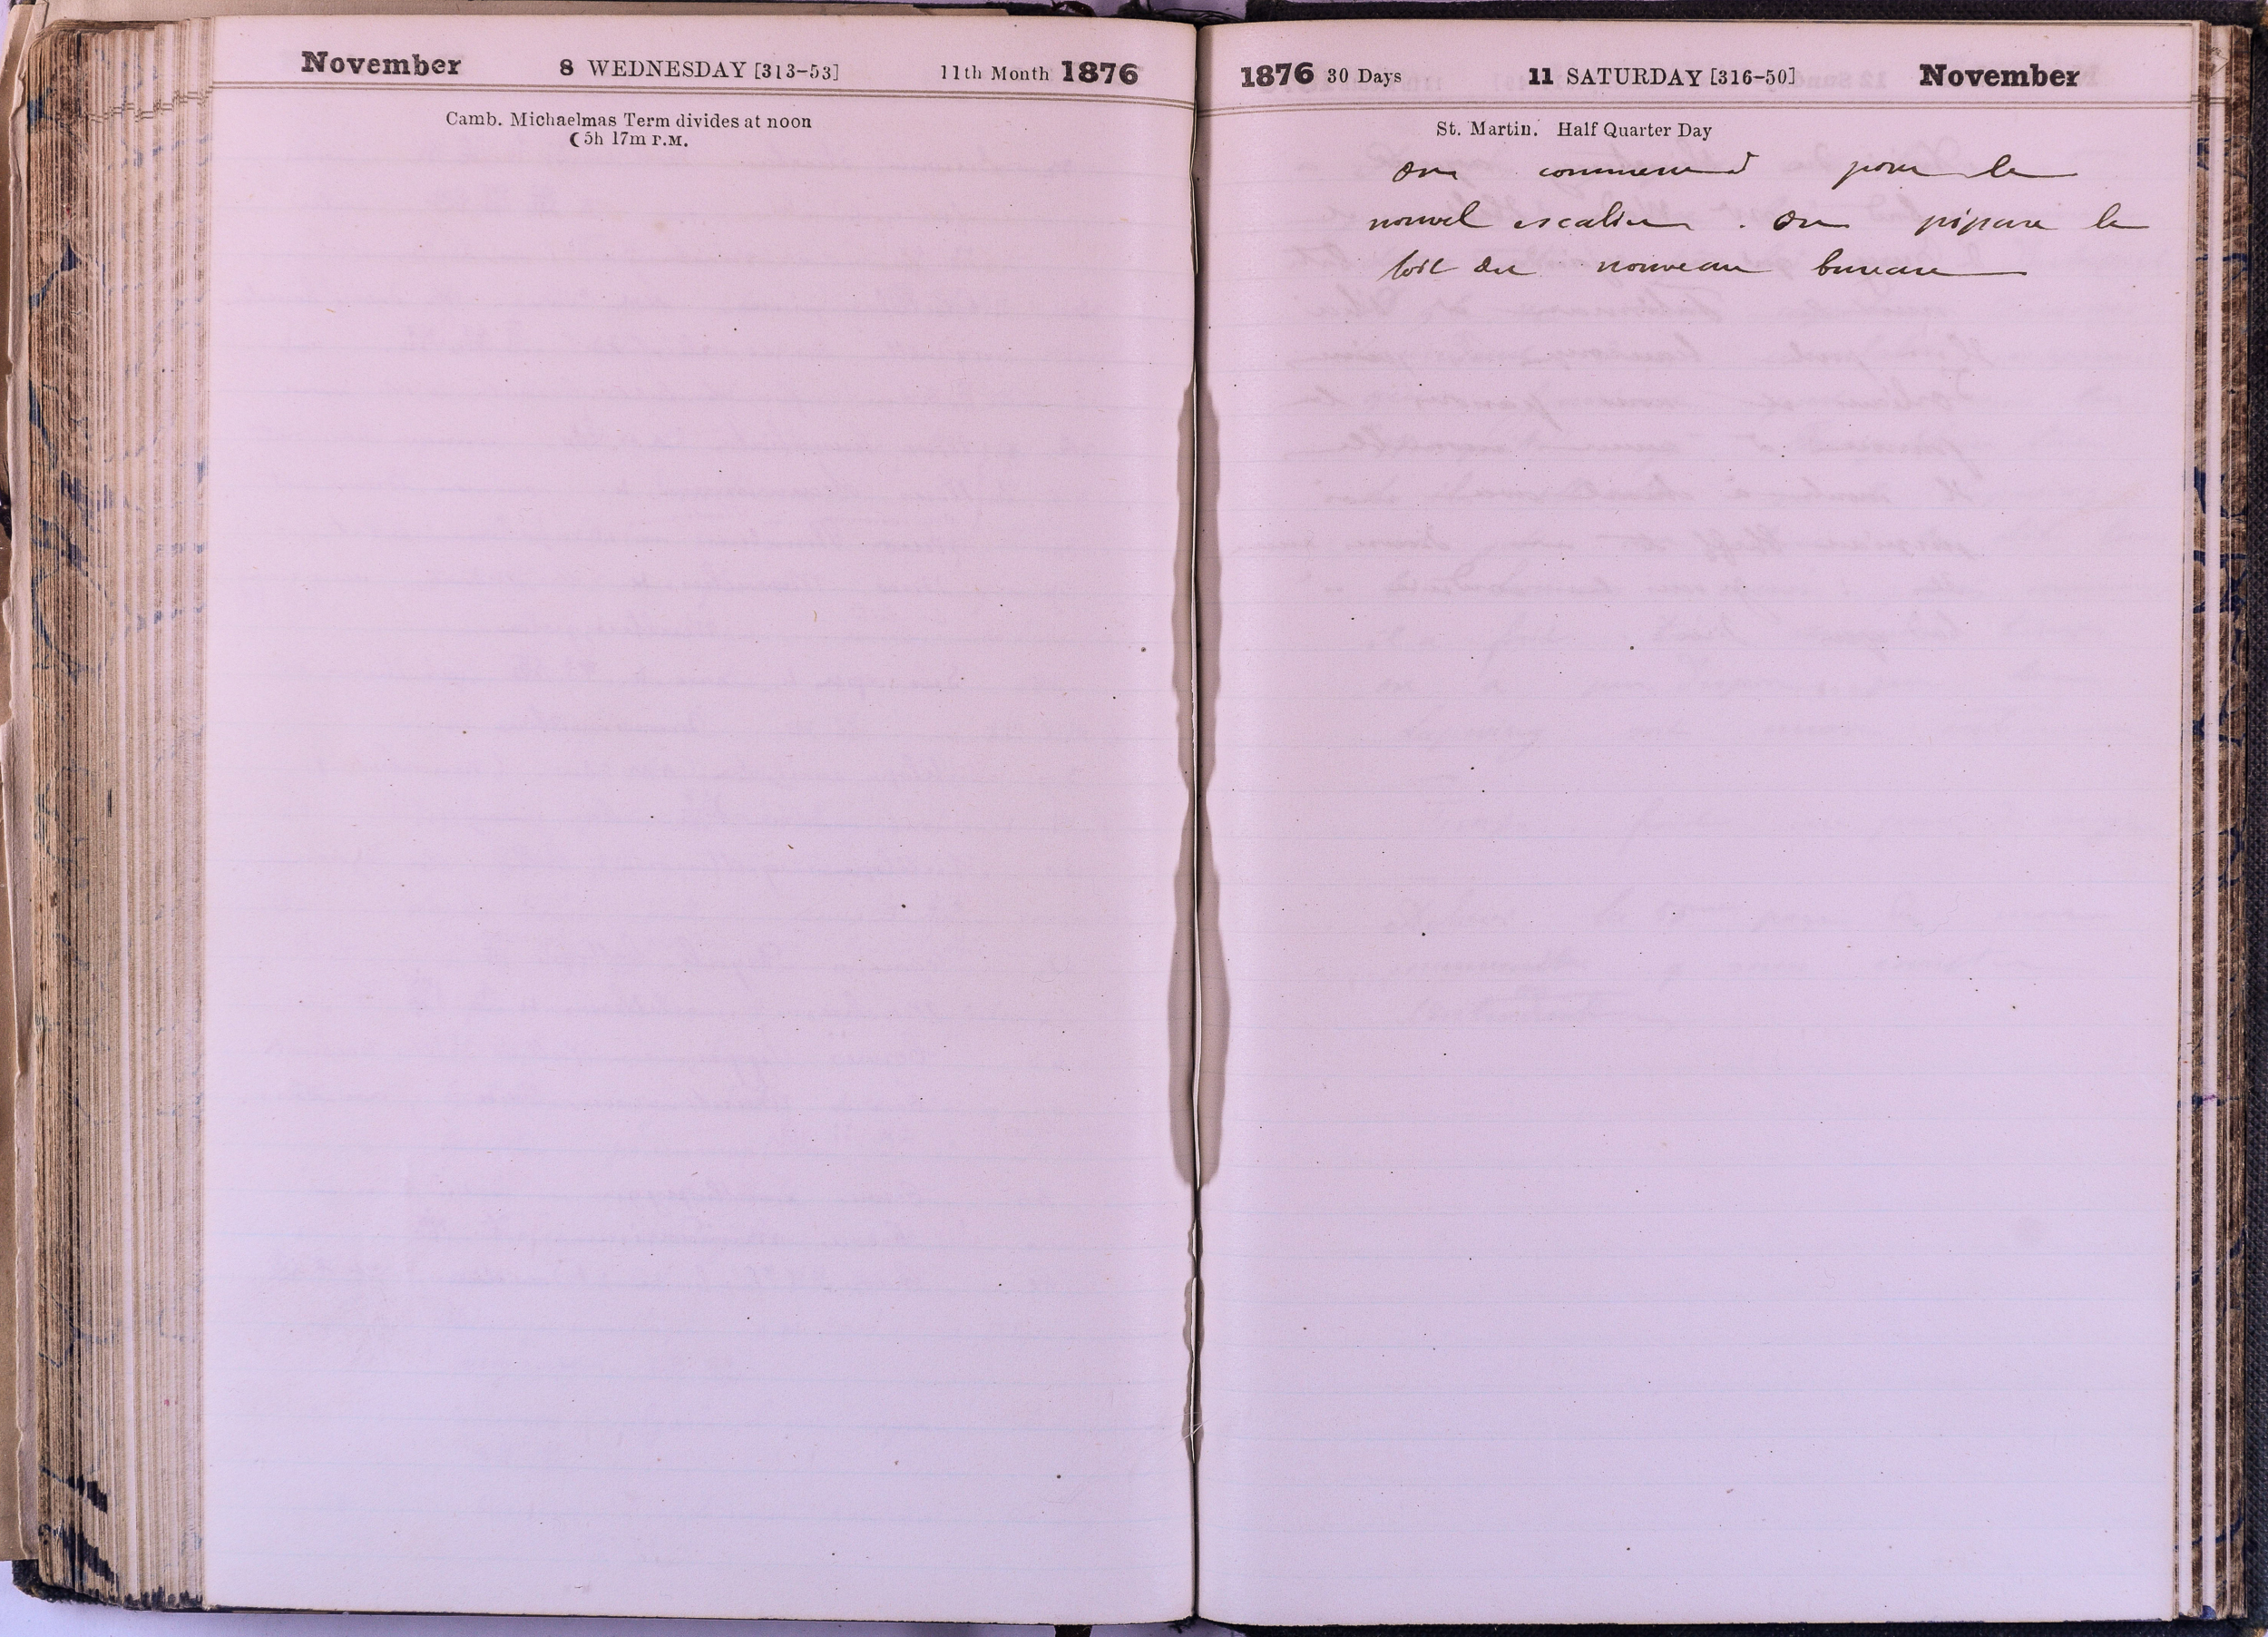 November 8 WEDNESDAY [313-53] 11th Month 1876
Camb. Michaelmas Term divides at noon
☾ 5h 17m P.M.
1876 30 Days 11 SATURDAY [316-50] November
St. Martin. Half Quarter Day
On commence pour le
nouvel escalier. On prépare le
toit du nouveau bureau